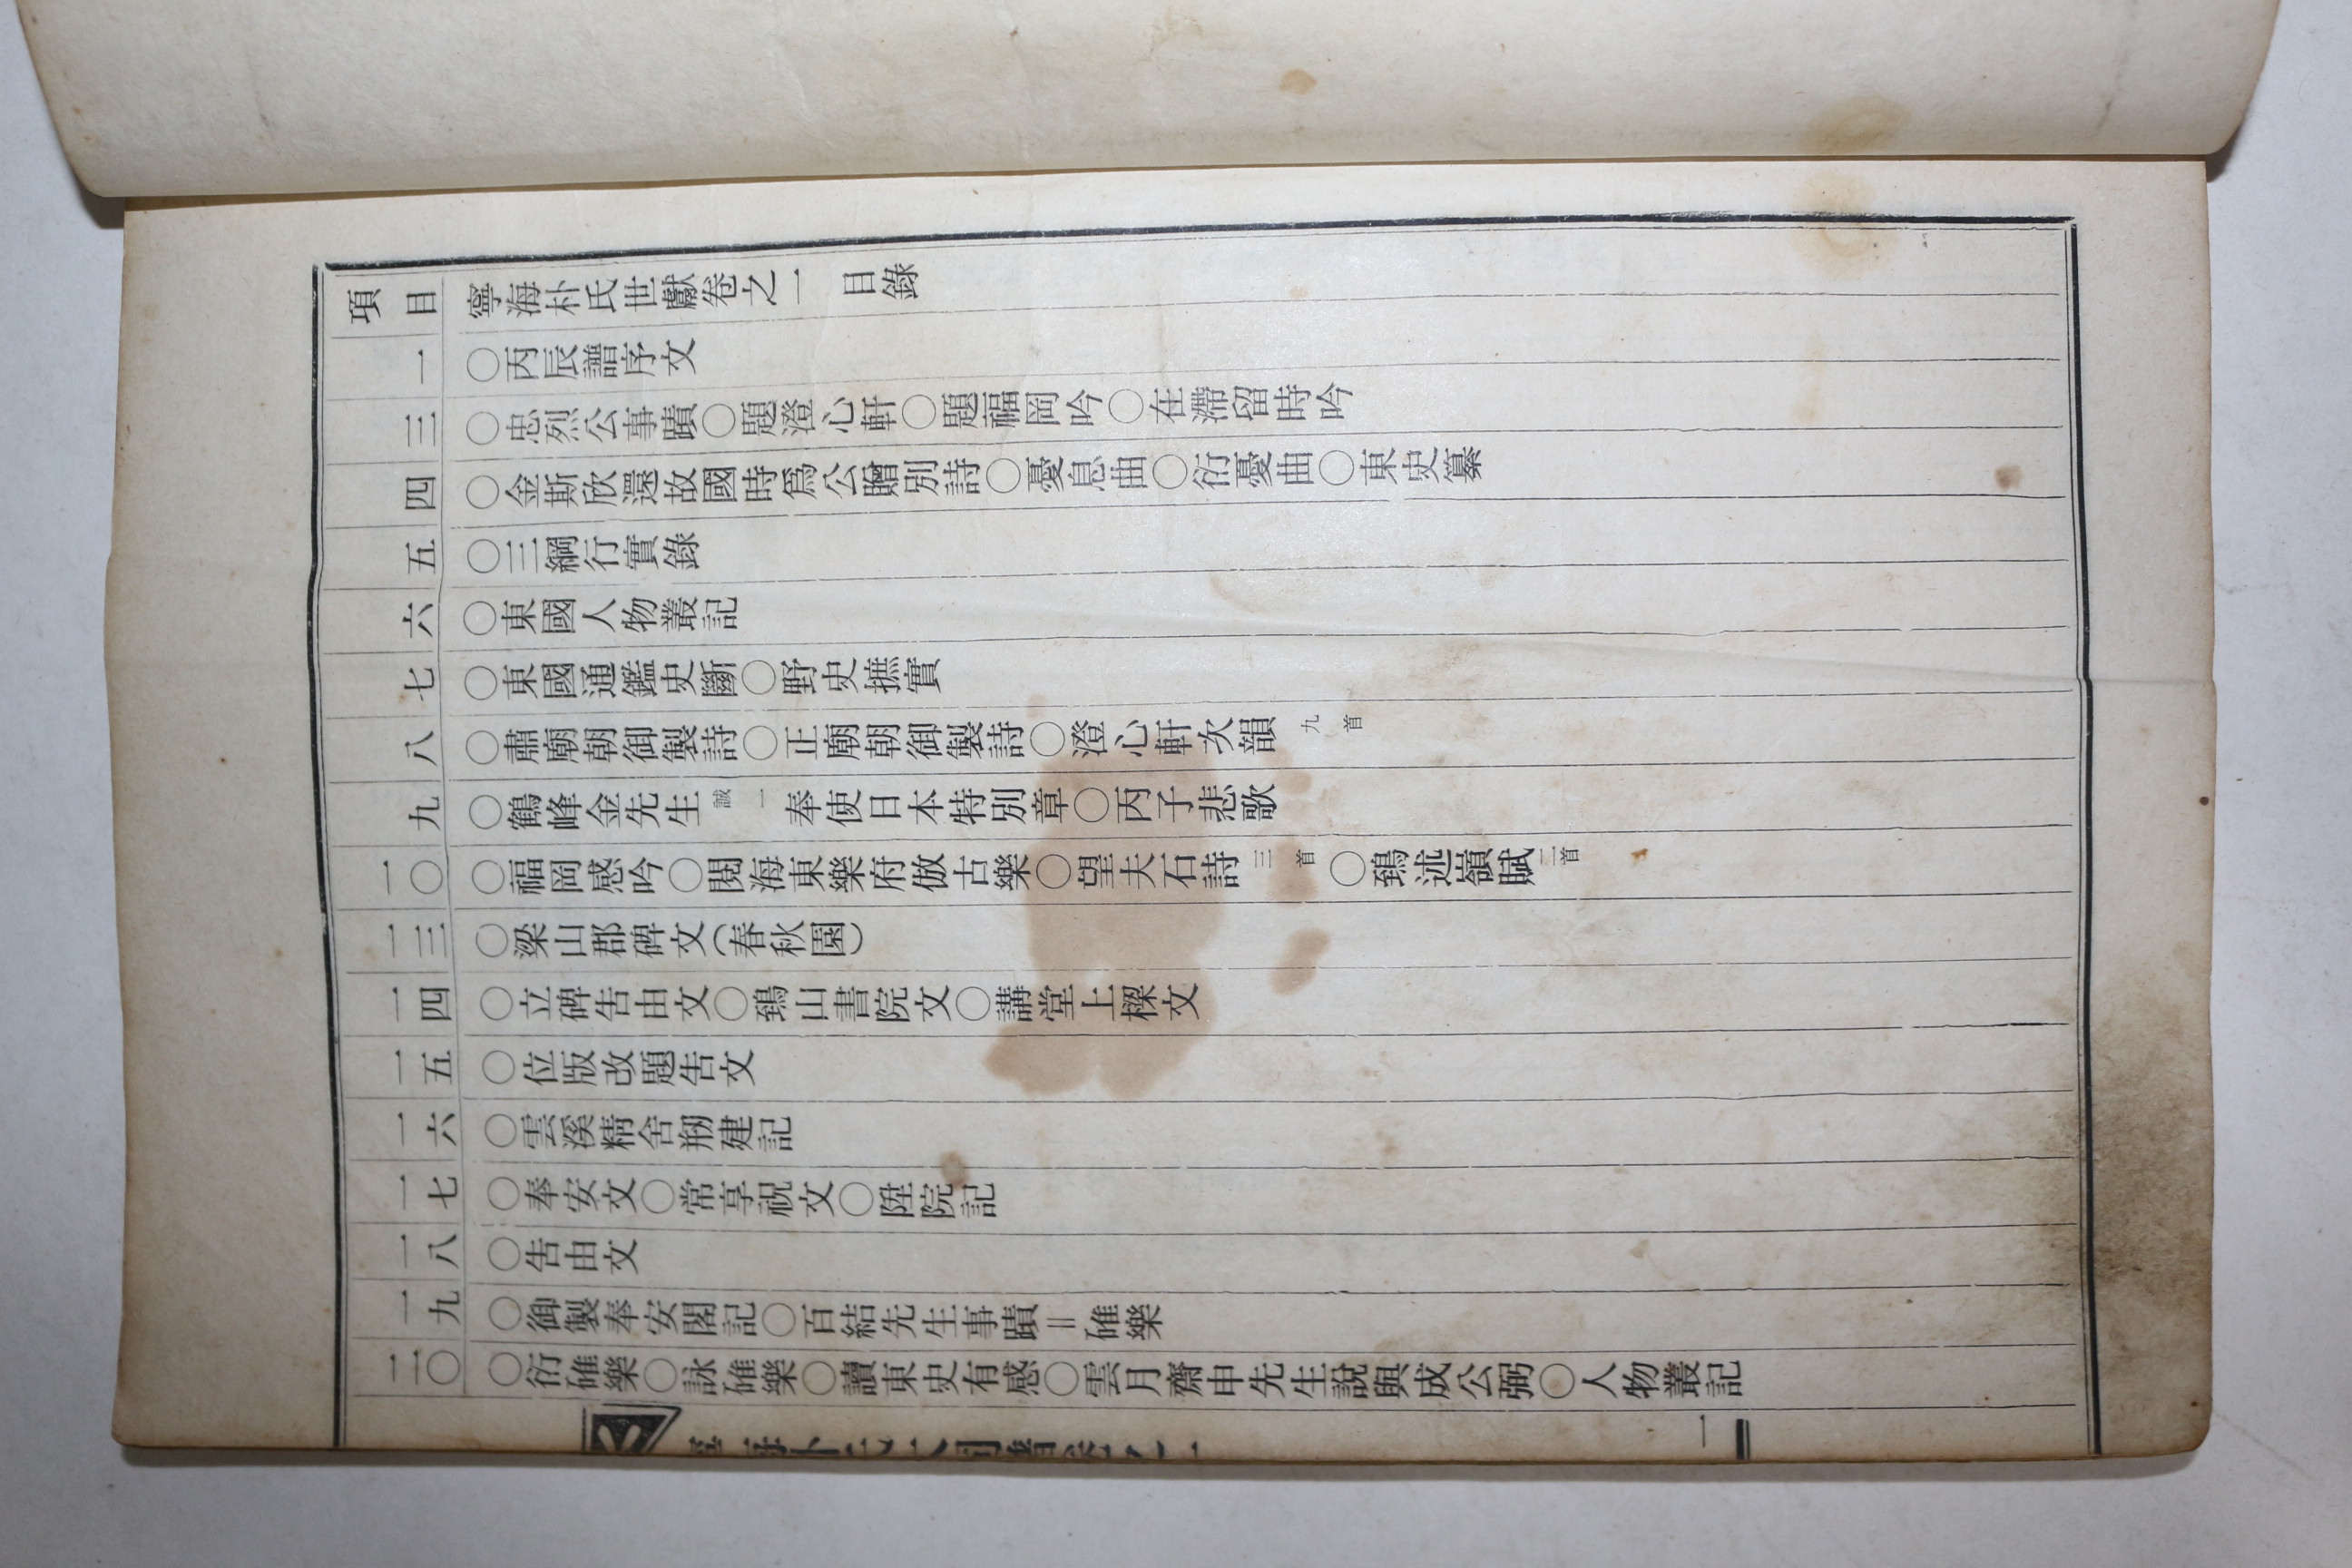 項目 寧海朴氏世獻卷之一 目錄
一 〇丙辰譜序文
三 〇忠烈公事蹟〇題澄心軒〇題福岡吟〇在滯留時吟
四 〇金斯欣還故國時爲公贈別詩〇憂息曲〇衍憂曲〇東史纂
五 〇三綱行實錄
六 〇東國人物叢記
七 〇東國通鑑史斷〇野史摭實
八 〇肅廟朝御製詩〇正廟朝御製詩〇澄心軒次韻 九首
九 〇鶴峰金先生 誠一 奉使日本特別章〇丙子悲歌
一〇 〇福岡感吟〇閱海東樂府倣古樂〇望夫石詩 三首 〇鵄述嶺賦 二首
一三 〇梁山郡碑文(春秋園)
一四 〇立碑告由文〇鵄山書院文〇講堂上樑文
一五 〇位版改題告文
一六 〇雲溪精舍剏建記
一七 〇奉安文〇常享祝文〇陞院記
一八 〇告由文
一九 〇御製奉安閣記〇百結先生事蹟=碓樂
二〇 〇衍碓樂〇詠碓樂〇讀東史有感〇雲月齋申先生說與成公弼〇人物叢記
一